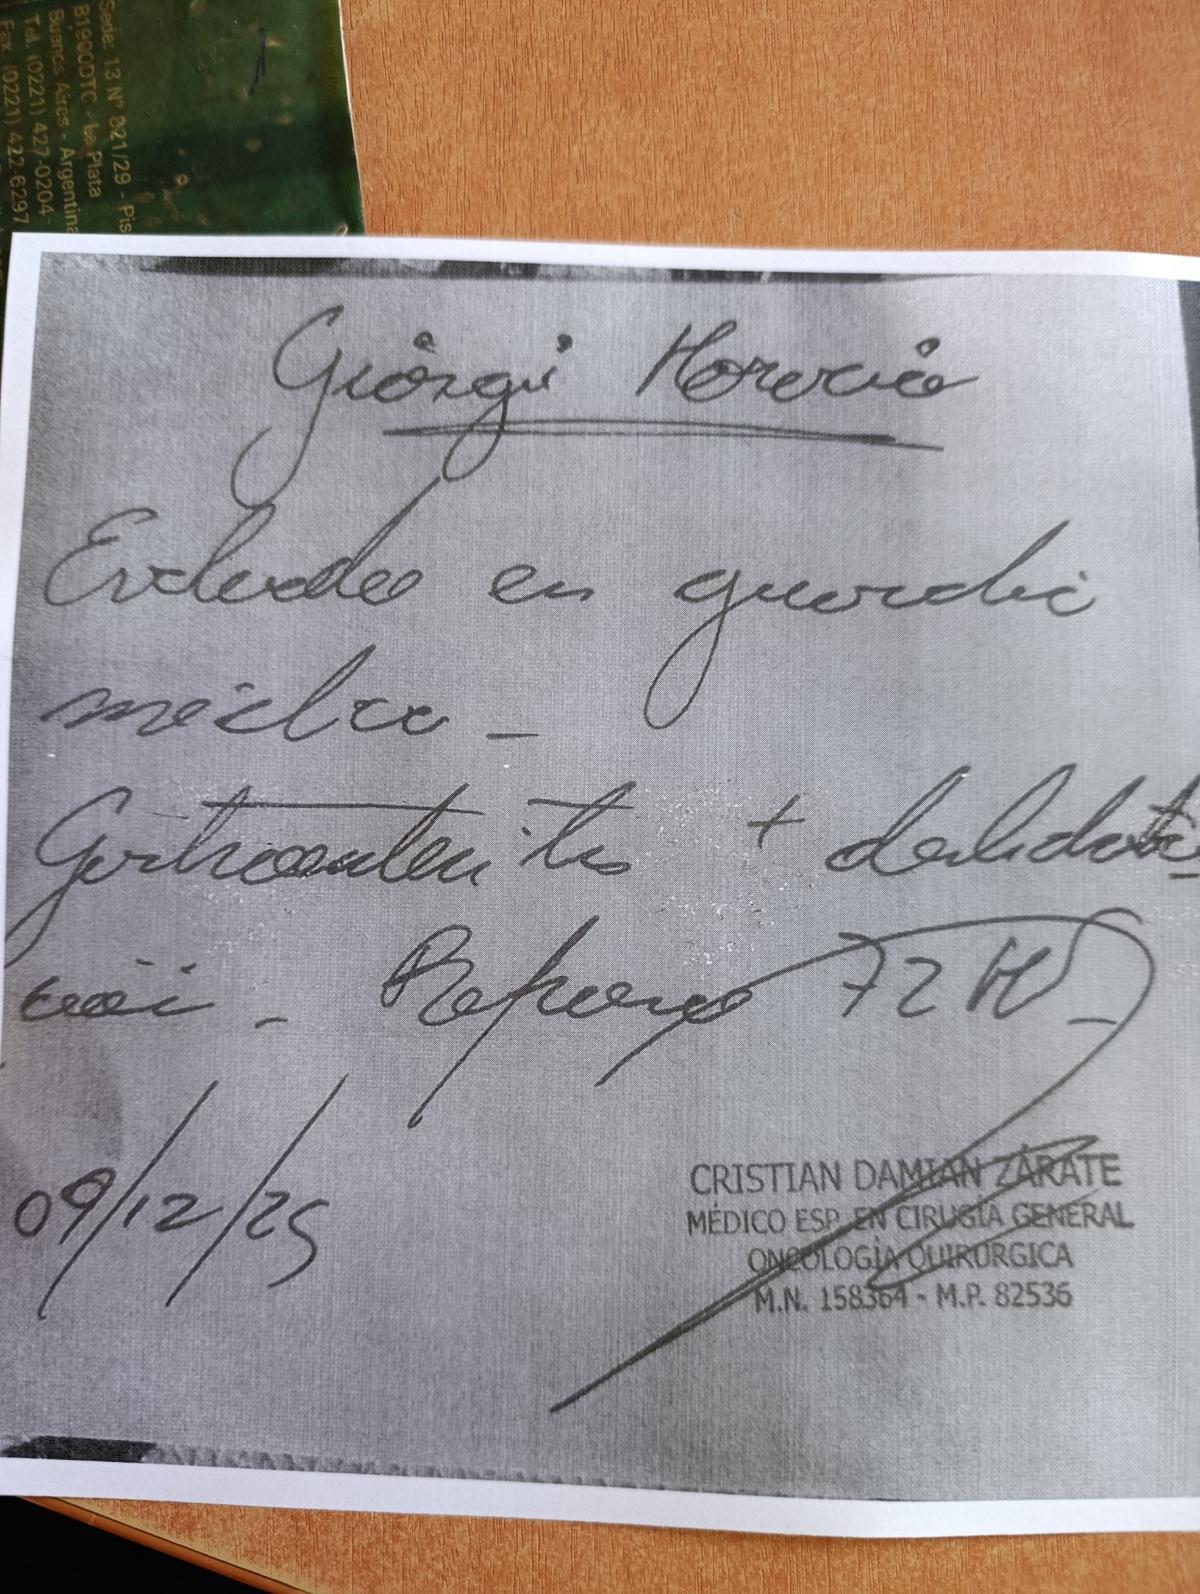 Sede: 13 Nº 821/29 - Pis
B1900DTC - La Plata
Buenos Aires - Argentina
Tel. (0221) 427-0204
Fax. (0221) 422-6297
Giorgi Horacio
Evaluado en guardia
médica -
Gastroenteritis + deshidrata-
ción - Reposo 72 HS -
09/12/25
CRISTIAN DAMIAN ZARATE
MÉDICO ESP. EN CIRUGÍA GENERAL
ONCOLOGÍA QUIRÚRGICA
M.N. 158364 - M.P. 82536